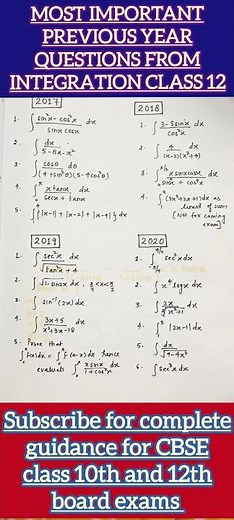 MOST IMPORTANT
PREVIOUS YEAR
QUESTIONS FROM
INTEGRATION CLASS 12
2017
1. ∫ (sin²x - cos²x)/(sinx cosx) dx
2. ∫ dx/(5-8x-x²)
3. ∫ cosθ/((4+sin²θ)(5-4cos²θ)) dθ
4. ∫₀^π (x tanx)/(secx + tanx) dx
5. ∫₁⁴ {|x-1| + |x-2| + |x-4|} dx
2018
1. ∫ (3-5sinx)/cos²x dx
2. ∫ 4/((x-2)(x²+4)) dx
4. ∫ dx as
limit of sum
[Not for coming
exam]
2019
1. ∫ sec²x/√(tan²x+4) dx
2. ∫ √(1-sin2x) dx, π/4 < x < π/2
3. ∫ sin⁻¹(2x) dx
4. ∫ (3x+5)/(x²+3x-18) dx
5. Prove that
∫₀^a f(x)dx = ∫₀^a f(a-x)dx, hence
evaluate ∫₀^π (x sinx)/(1+cos²x) dx
2020
1. sec²x dx
2. ∫ x⁴ log x dx
3. ∫ 2x/∛(x²+1) dx
4. ∫₁³ |2x-1| dx
5. ∫ dx/√(9-4x²)
6. ∫ sec³x dx
Subscribe for complete
guidance for CBSE
class 10th and 12th
board exams